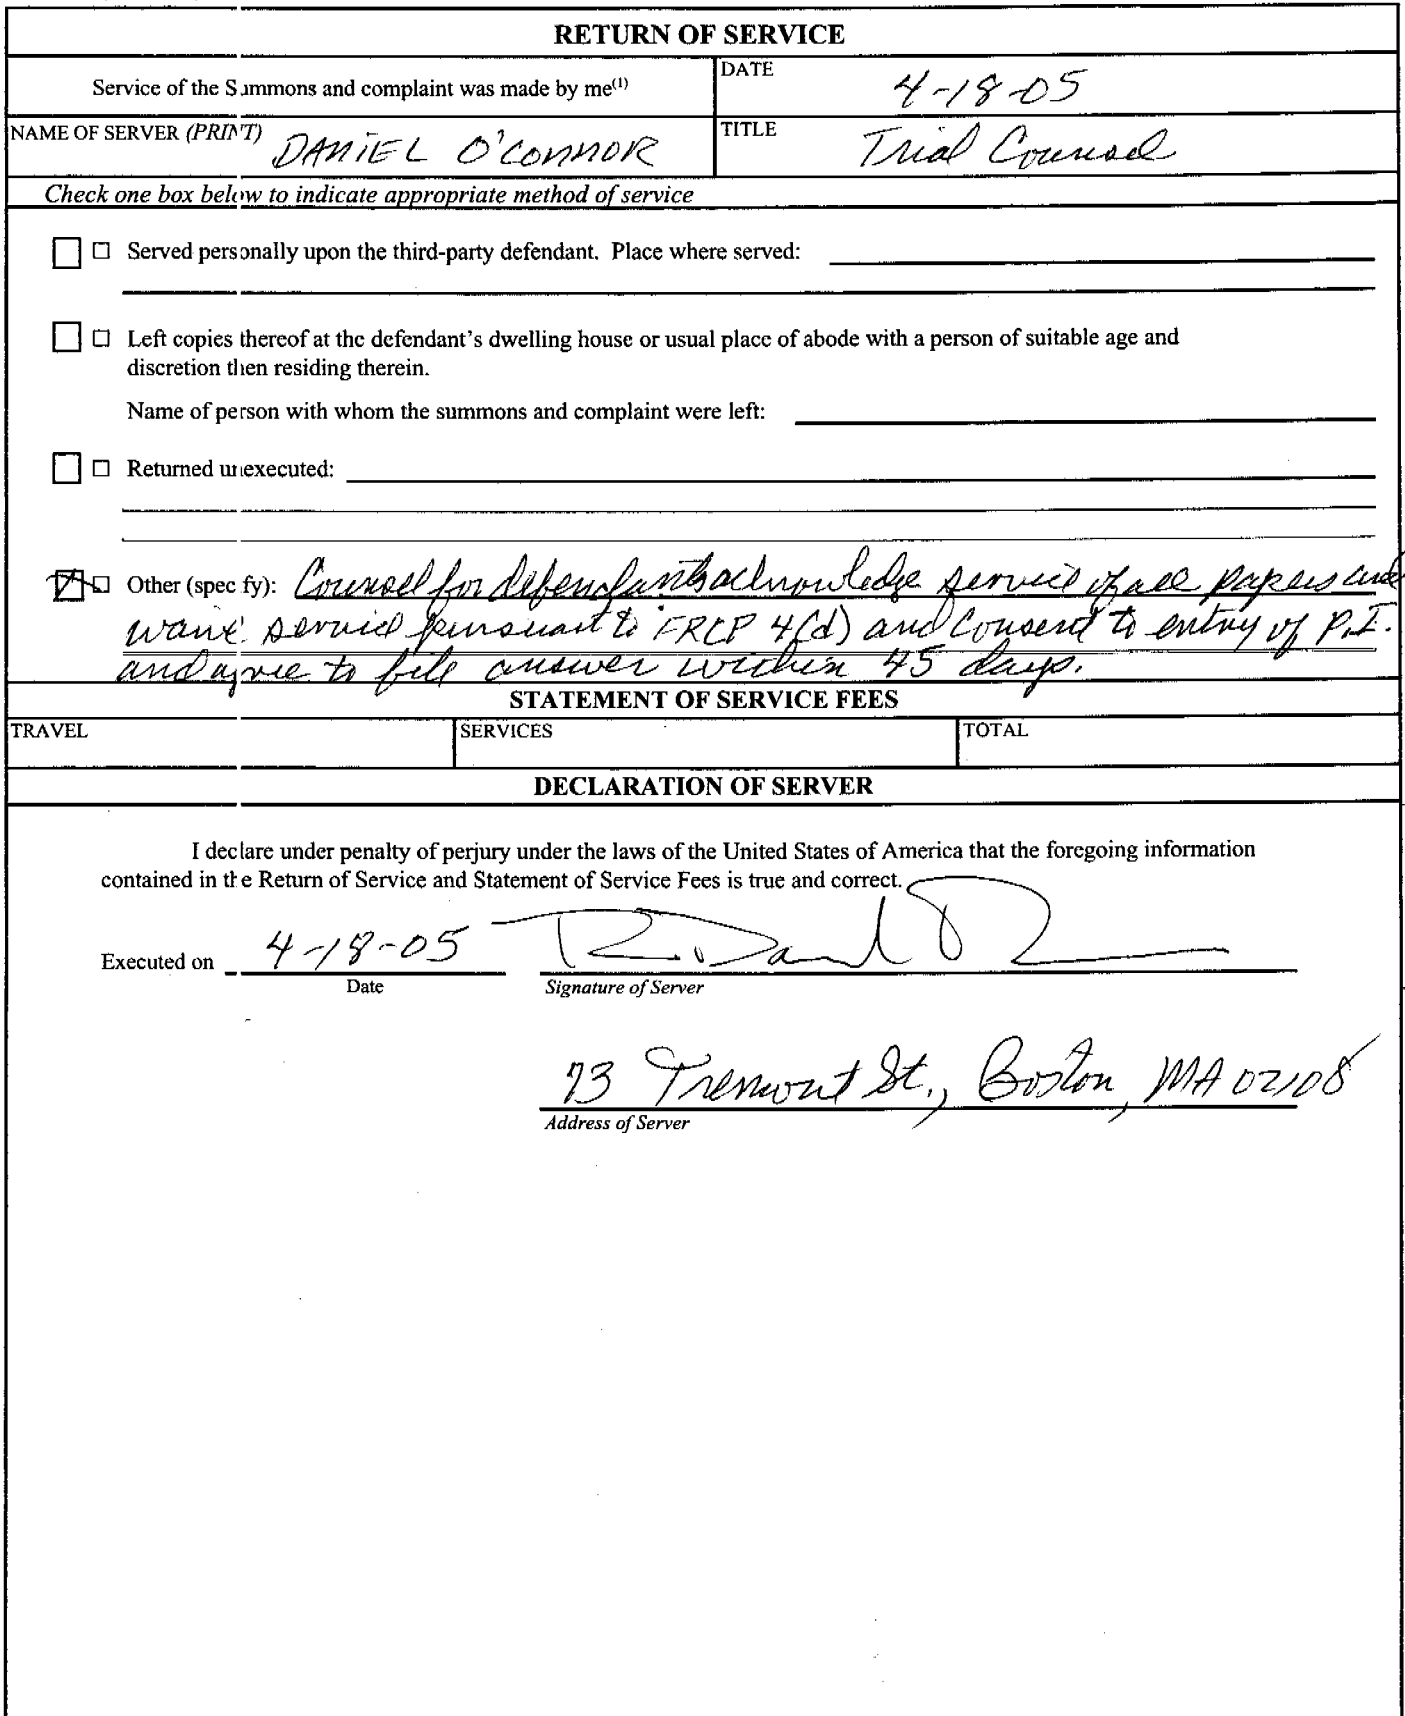 RETURN OF SERVICE
Service of the Summons and complaint was made by me(1)
DATE
4-18-05
NAME OF SERVER (PRINT)
DANIEL O'CONNOR
TITLE
Trial Counsel
Check one box below to indicate appropriate method of service
☐ ☐ Served personally upon the third-party defendant. Place where served:
☐ ☐ Left copies thereof at the defendant's dwelling house or usual place of abode with a person of suitable age and
discretion then residing therein.
Name of person with whom the summons and complaint were left:
☐ ☐ Returned unexecuted:
☑ ☐ Other (specify): Counsel for defendants acknowledge service of all papers and
waive service pursuant to FRCP 4(d) and consent to entry of P.I.
and agree to file answer within 45 days.
STATEMENT OF SERVICE FEES
TRAVEL
SERVICES
TOTAL
DECLARATION OF SERVER
I declare under penalty of perjury under the laws of the United States of America that the foregoing information
contained in the Return of Service and Statement of Service Fees is true and correct.
Executed on 4-18-05
Date
Signature of Server
73 Tremont St., Boston, MA 02108
Address of Server